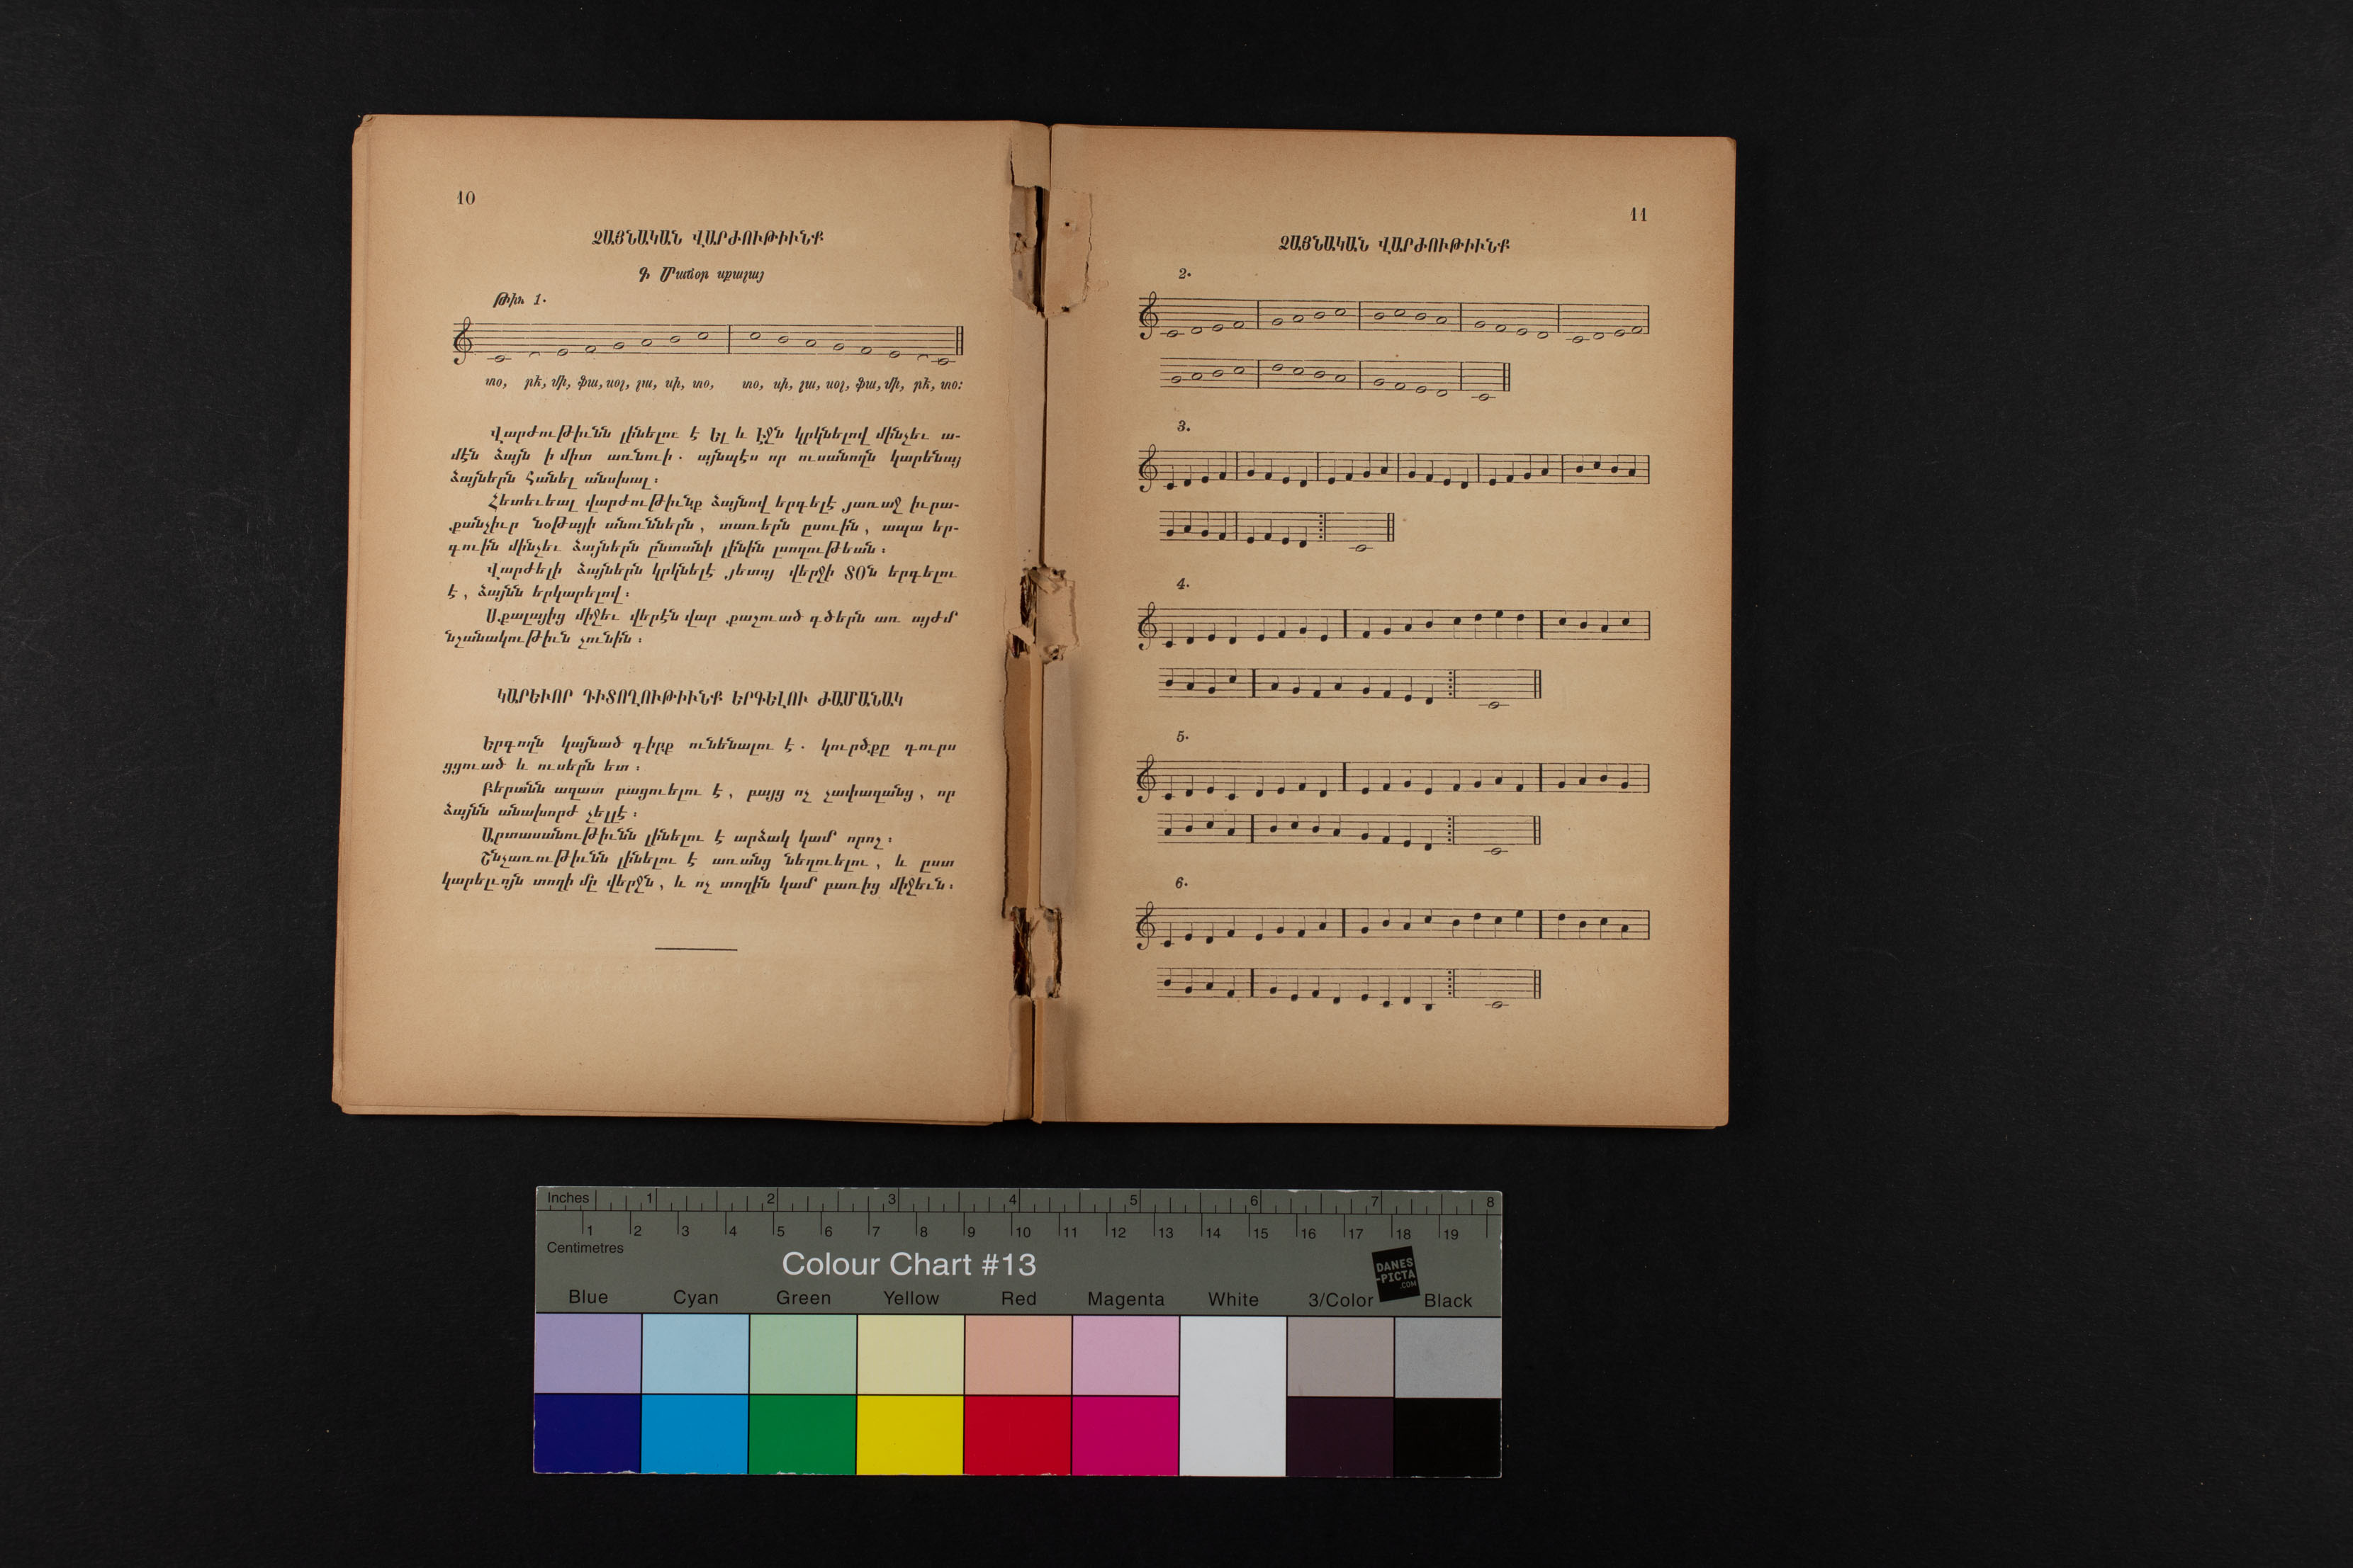 10
ՁԱՅՆԱԿԱՆ ՎԱՐԺՈՒԹԻՒՆՔ
Գ Մաժօր սքալայ
Թիւ 1.
տօ, րէ, մի, ֆա, սօլ, լա, սի, տօ, տօ, սի, լա, սօլ, ֆա, մի, րէ, տօ:
Վարժութիւնն լինելու է Ել և Էջն կրկնելով մինչեւ ա-
մէն ձայն ի միտ առնուի. այնպէս որ ուսանողն կարենայ
ձայներն հանել անսխալ:
Հետեւեալ վարժութիւնք ձայնով երգելէ յառաջ իւրա-
քանչիւր նօթայի անուններն, տառերն ըսուին, ապա եր-
գուին մինչեւ ձայներն ընտանի լինին լսողութեան:
Վարժելի ձայներն կրկնելէ յետոյ վերջի ՏՕն երգելու
է, ձայնն երկարելով:
Սքալայից միջեւ վերէն վար քաշուած գծերն առ այժմ
նշանակութիւն չունին:
ԿԱՐԵՒՈՐ ԴԻՏՈՂՈՒԹԻՒՆՔ ԵՐԳԵԼՈՒ ԺԱՄԱՆԱԿ
Երգողն կայնած դիրք ունենալու է. կուրծքը դուրս
ցցուած և ուսերն ետ:
Բերանն ազատ բացուելու է, բայց ոչ չափազանց, որ
ձայնն անախորժ չելլէ:
Արտասանութիւնն լինելու է արձակ կամ որոշ:
Շնչառութիւնն լինելու է առանց նեղուելու, և ըստ
կարելւոյն տողի մը վերջն, և ոչ տողին կամ բառից միջեւն:
11
ՁԱՅՆԱԿԱՆ ՎԱՐԺՈՒԹԻՒՆՔ
2.
3.
4.
5.
6.
Inches 1 2 3 4 5 6 7 8
1 2 3 4 5 6 7 8 9 10 11 12 13 14 15 16 17 18 19
Centimetres
Colour Chart #13
DANES
-PICTA
.COM
Blue Cyan Green Yellow Red Magenta White 3/Color Black